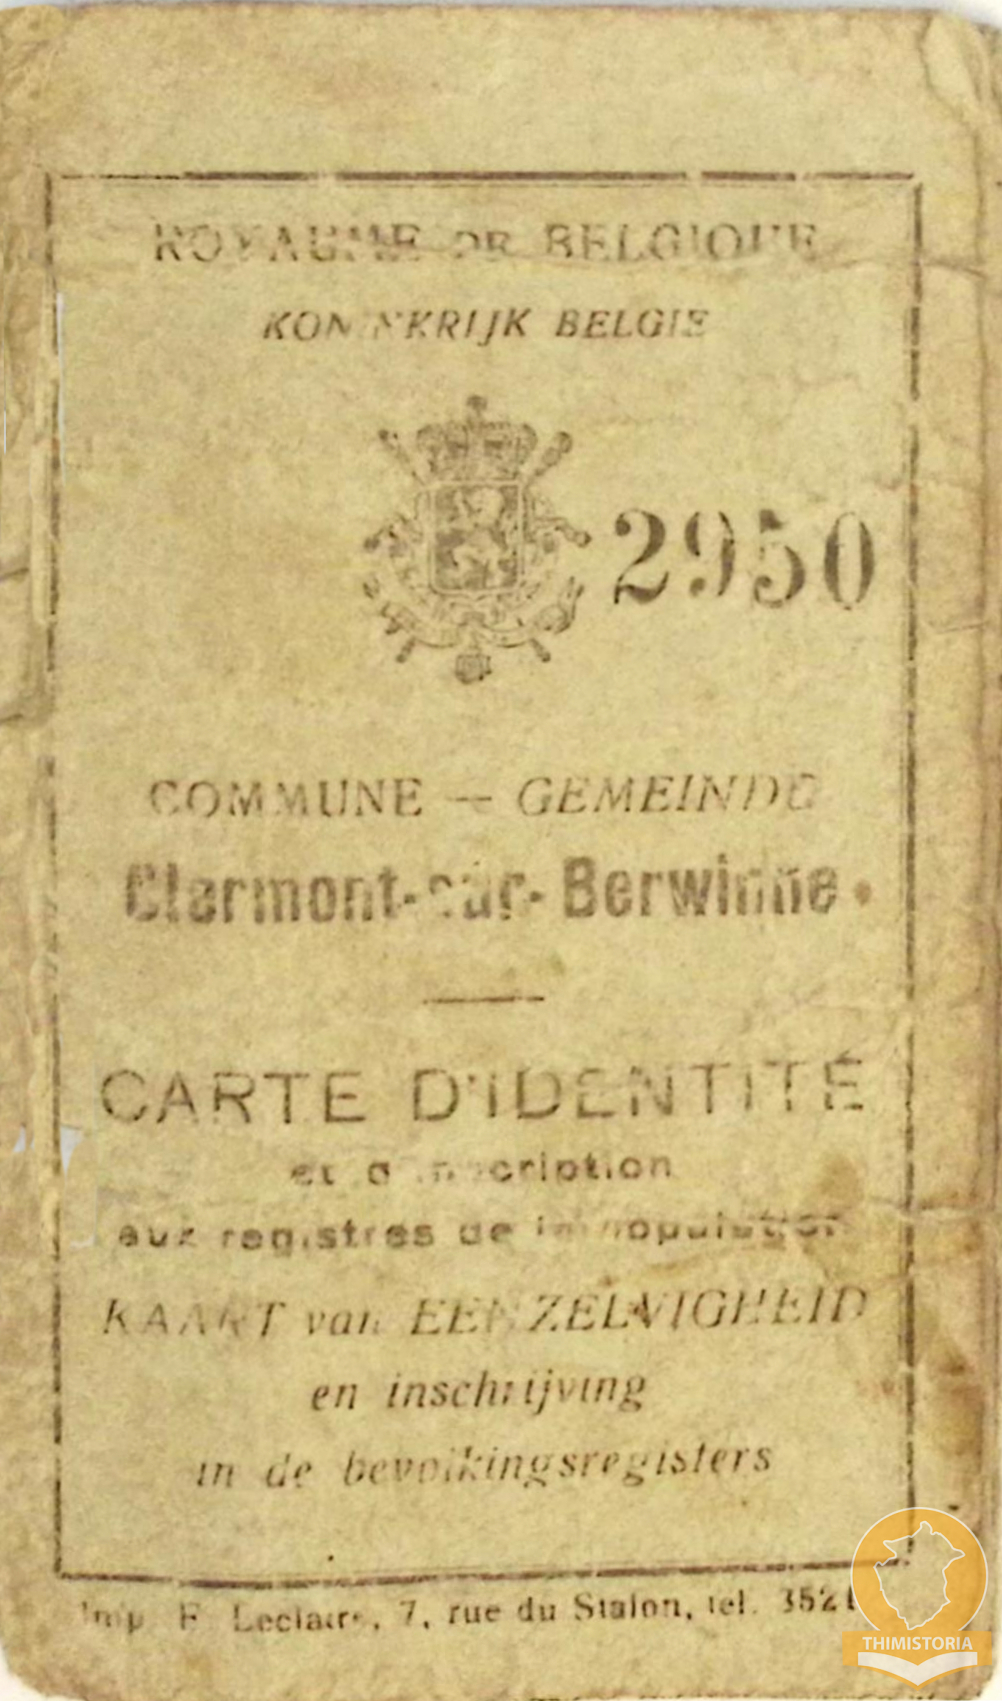 ROYAUME DE BELGIQUE
KONINKRIJK BELGIE
2950
COMMUNE — GEMEINDE
Clermont-sur-Berwinne.
CARTE D'IDENTITÉ
et d'inscription
aux registres de la population
KAART van EENZELVIGHEID
en inschrijving
in de bevolkingsregisters
Imp. F. Leclaire, 7, rue du Stalon, tel.
THIMISTORIA